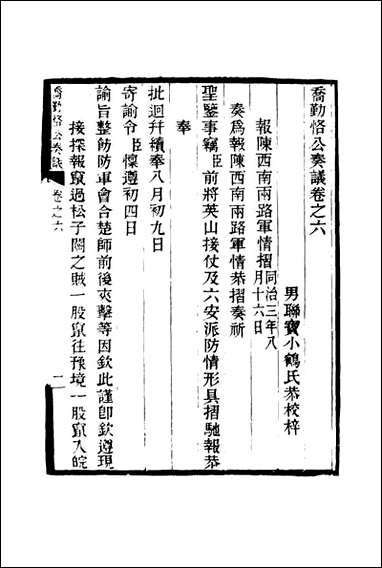 喬勤恪公奏議卷之六
男聯寶小鶴氏恭校梓
報陳西南兩路軍情摺同治三年八月十六日
奏爲報陳西南兩路軍情恭摺奏祈
聖鑒事竊臣前將英山接仗及六安派防情形具摺馳報恭
奉
批迴幷續奉八月初九日
寄諭令臣懍遵初四日
諭旨整飭防軍會合楚師前後夾擊等因欽此謹卽欽遵現
接探報竄過松子關之賊一股竄往豫境一股竄入皖
喬勤恪公奏議
卷之六
一